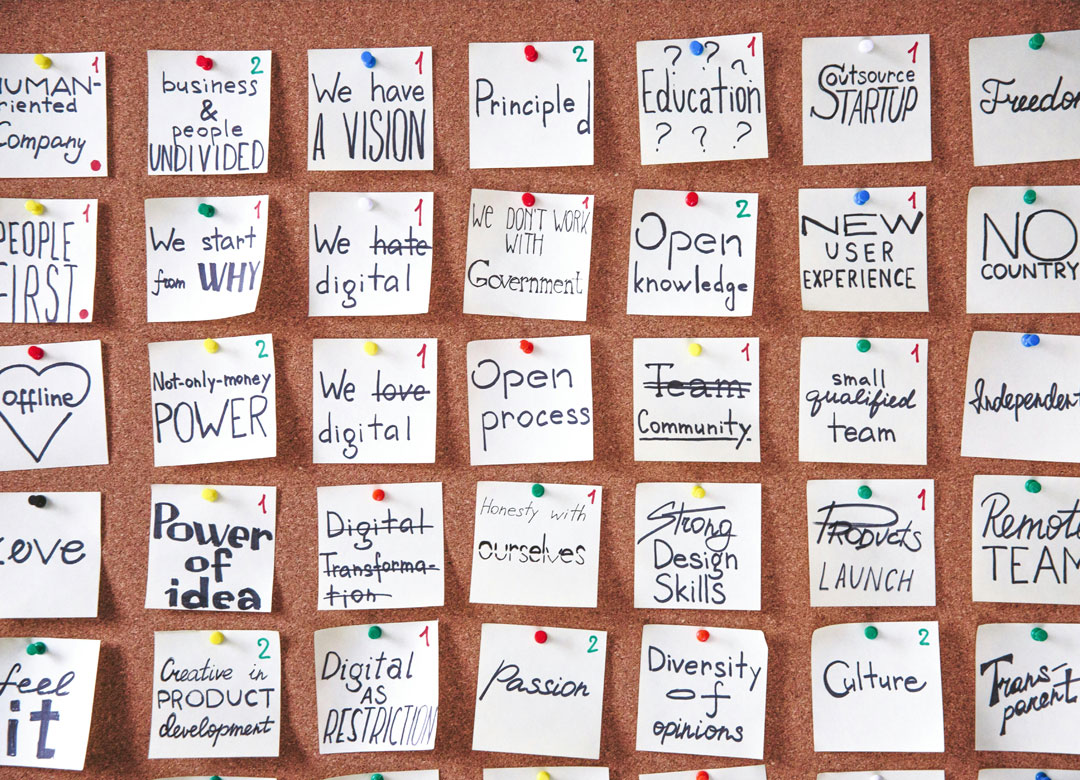 1
HUMAN-
riented
Company
2
business
&
people
UNDIVIDED
1
We have
A VISION
2
Principled
1
? ? ?
Education
? ? ?
1
Outsource
STARTUP
Freedo
1
PEOPLE
FIRST.
1
We start
from WHY
1
We hate
digital
1
WE DON'T WORK
WITH
Government
2
Open
knowledge
1
NEW
USER
EXPERIENCE
NO
COUNTRY
offline
2
Not-only-money
POWER
1
We love
digital
Open
process
1
Team
Community.
1
small
qualified
team
Independent
Love
1
Power
of
idea
Digital
Transforma-
tion
1
Honesty with
ourselves
Strong
Design
Skills
1
PRODUCTS
LAUNCH
Remote
TEAM
feel
it
2
Creative in
PRODUCT
development
1
Digital
AS
RESTRICTION
2
Passion
Diversity
of
opinions
2
Culture
Trans-
parent